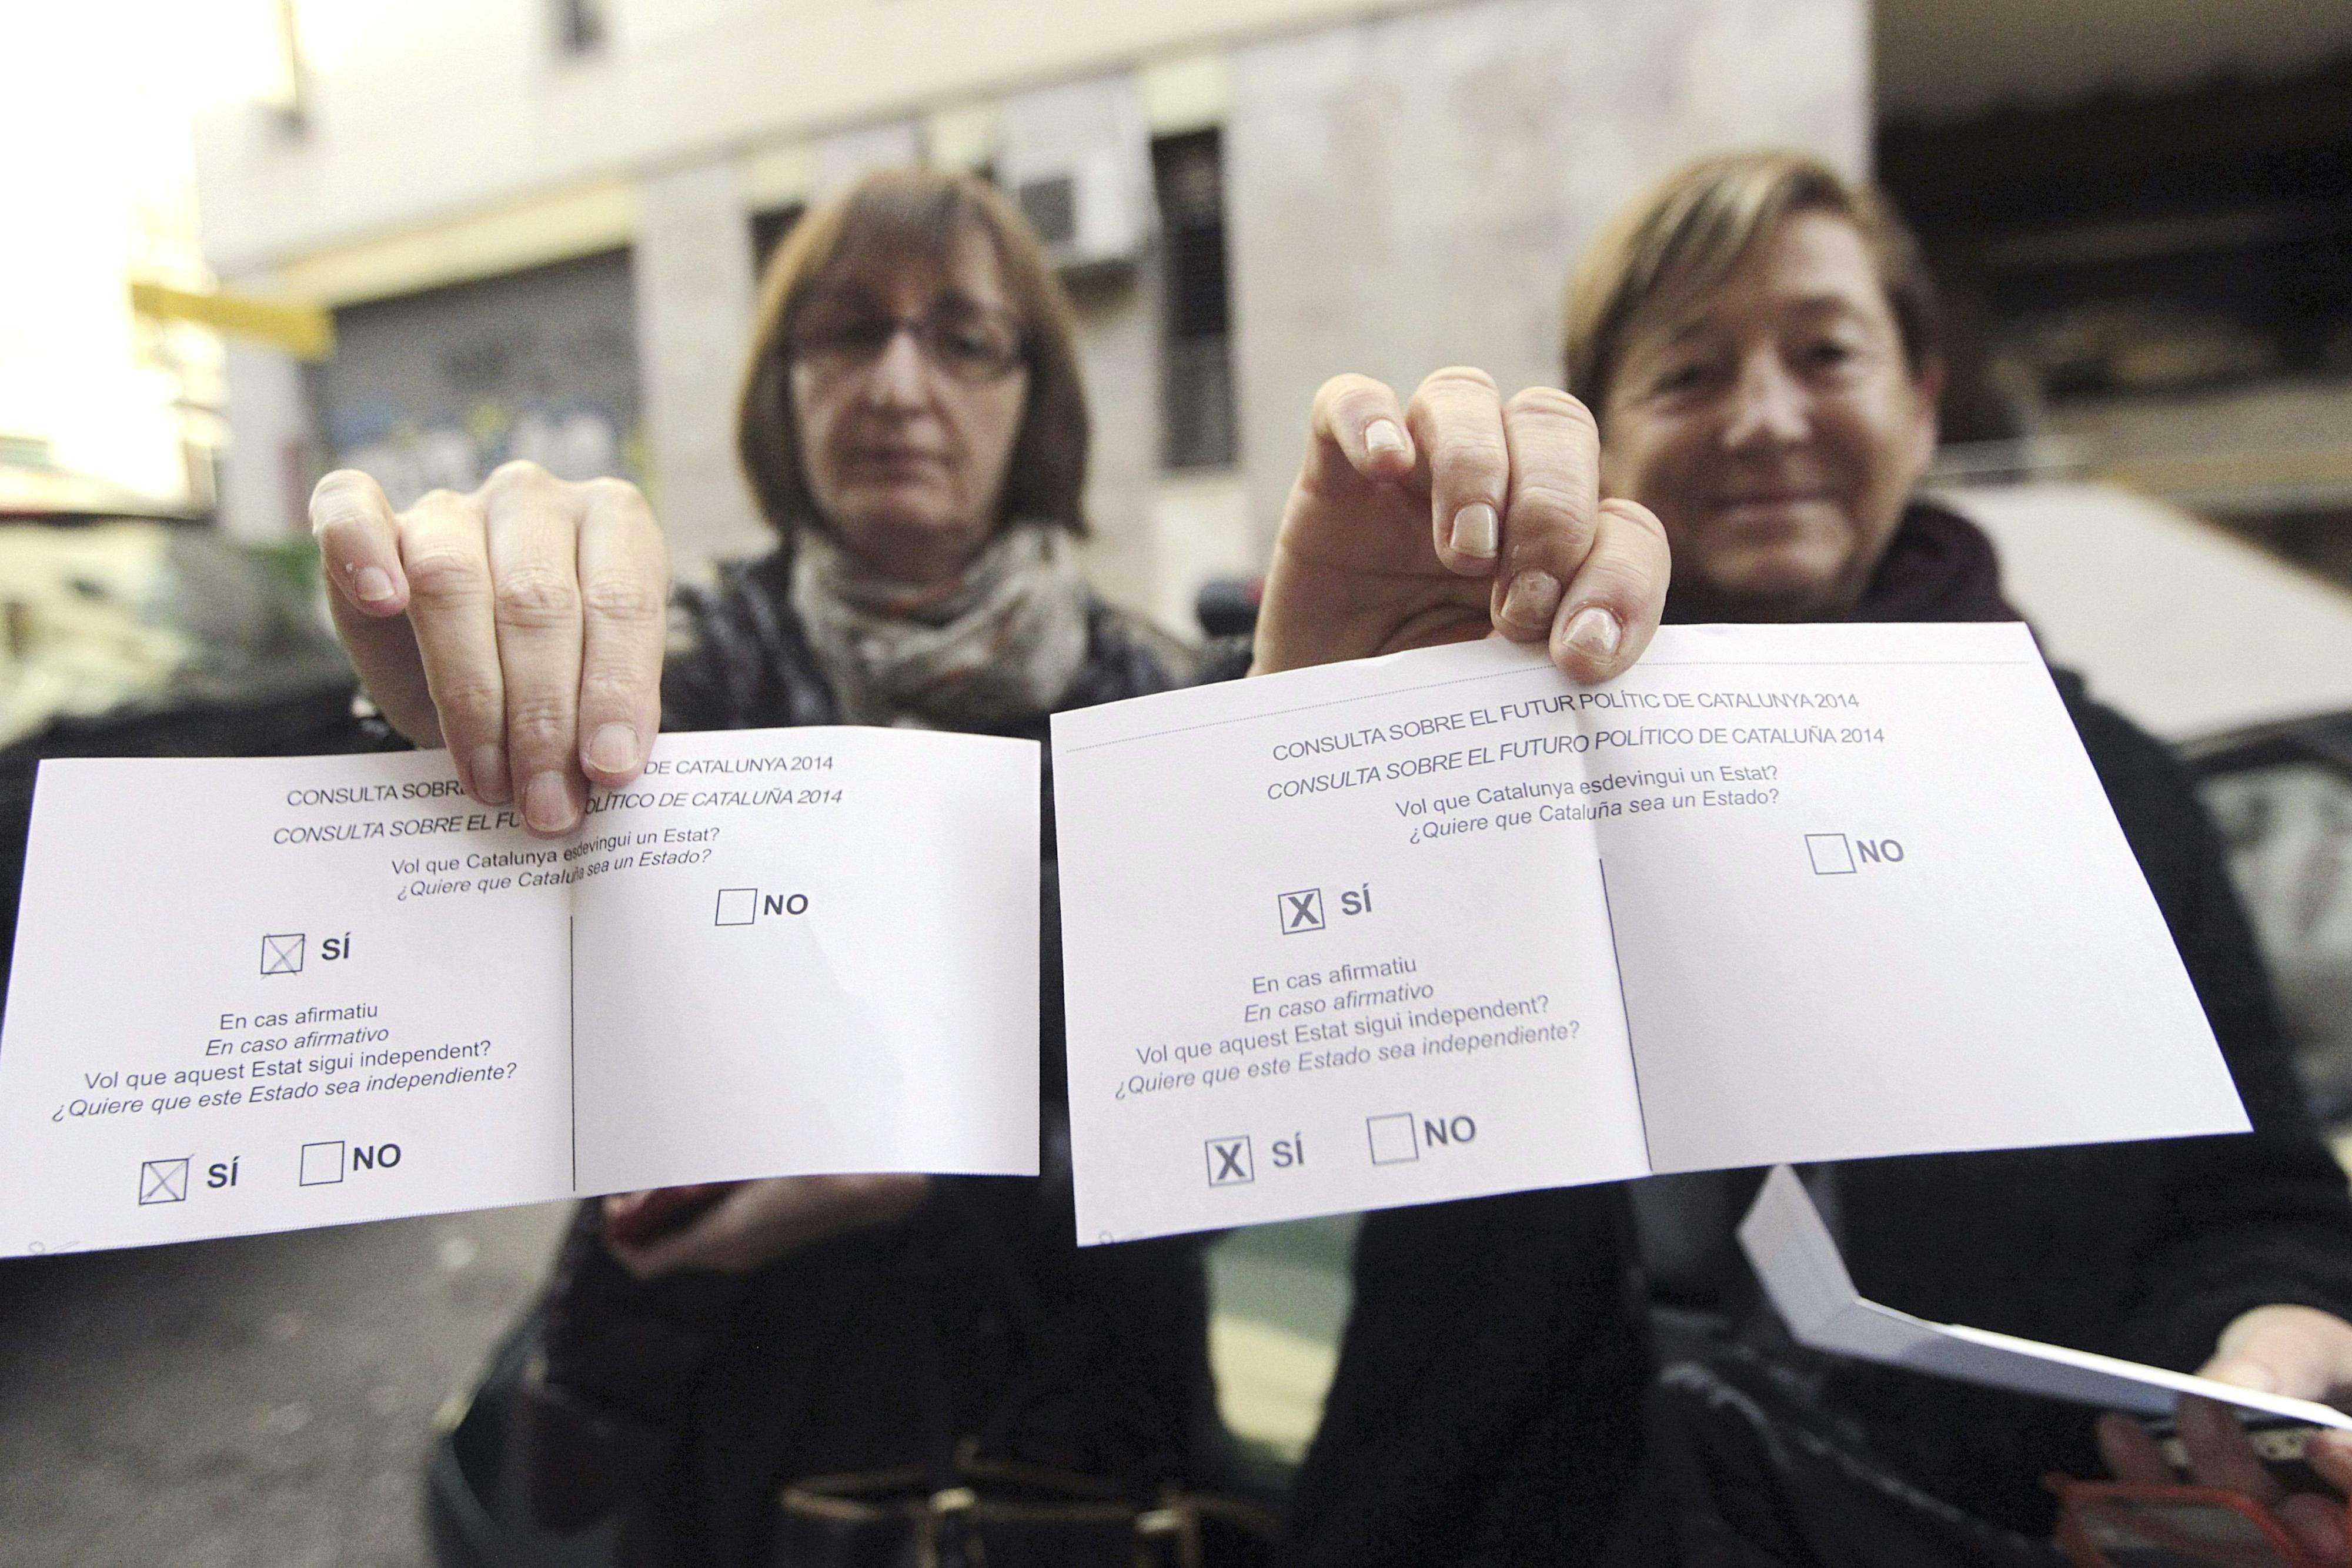 CONSULTA SOBR DE CATALUNYA 2014
CONSULTA SOBRE EL FU OLÍTICO DE CATALUÑA 2014
Vol que Catalunya esdevingui un Estat?
¿Quiere que Cataluña sea un Estado?
NO
X SÍ
En cas afirmatiu
En caso afirmativo
Vol que aquest Estat sigui independent?
¿Quiere que este Estado sea independiente?
X SÍ NO
CONSULTA SOBRE EL FUTUR POLÍTIC DE CATALUNYA 2014
CONSULTA SOBRE EL FUTURO POLÍTICO DE CATALUÑA 2014
Vol que Catalunya esdevingui un Estat?
¿Quiere que Cataluña sea un Estado?
NO
X SÍ
En cas afirmatiu
En caso afirmativo
Vol que aquest Estat sigui independent?
¿Quiere que este Estado sea independiente?
X SÍ NO